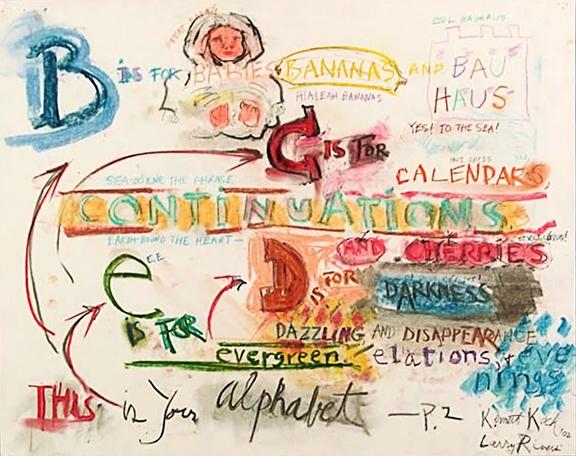 COL BAUHAUS
B IS FOR BABIES BANANAS AND BAU
HAUS
HIALEAH BANANAS
YES! TO THE SEA!
C IS FOR
CALENDARS
SEA-BORNE THE PHRASE
CONTINUATIONS
EARTH-BOUND THE HEART—
AND CHERRIES
e E.E. IS FOR
D IS FOR DARKNESS
DAZZLING AND DISAPPEARANCE
evergreen elations, + eve
nings
THIS is Your alphabet —P.2
Kenneth Koch '02
Larry Rivers